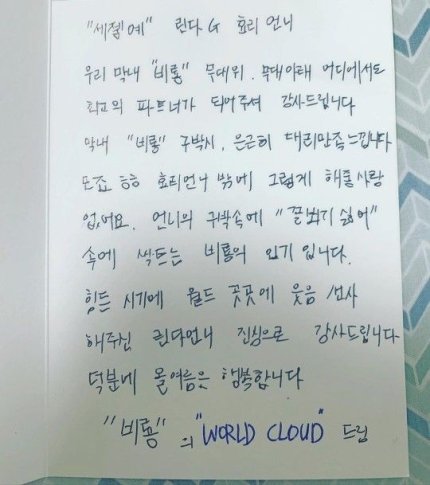 "세젤예" 린다G 효리 언니
우리 막내 "비룡" 무대위. 무대아래 어디에서도
최고의 파트너가 되어주셔 감사드립니다
막내 "비룡" 구박시, 은근히 대리만족느낍니다
도죠 ㅎㅎ 효리언니 밖에 그렇게 해줄 사람
없어요. 언니의 구박속에 "꼴뵈기 싫어"
속에 싹트는 비룡의 인기 입니다.
힘든 시기에 월드 곳곳에 웃음 선사
해주신 린다언니 진심으로 감사드립니다
덕분에 올여름은 행복합니다
"비룡" 의 "WORLD CLOUD" 드림